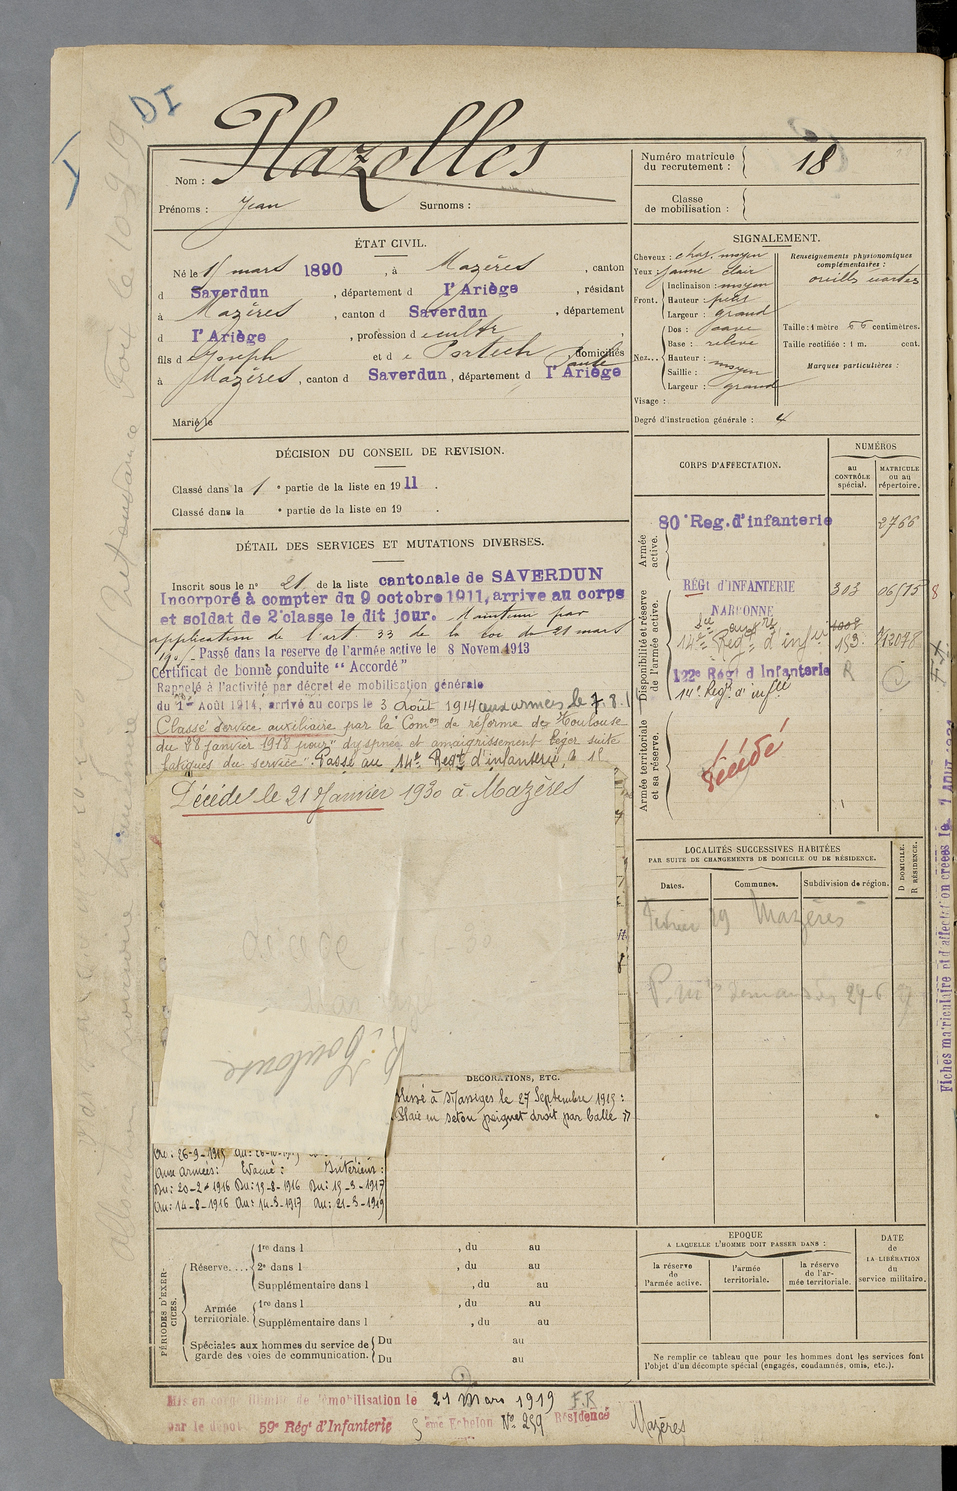 DI
Plazolles
Nom :
Prénoms : Jean Surnoms :
Numéro matricule du recrutement : 18
Classe de mobilisation :
ÉTAT CIVIL.
Né le 15 mars 1890, à Mazères, canton
d Saverdun, département d l'Ariège, résidant
à Mazères, canton d Saverdun, département
d l'Ariège, profession de cultr,
fils de Joseph et de Portech, domiciliés
à Mazères, canton d Saverdun, département d l'Ariège
Marié le
SIGNALEMENT.
Cheveux : chat. moyen
Yeux : jaune clair
Front. Inclinaison : moyen
Hauteur : petit
Largeur : grand
Nez... Dos : cave
Base : relevé
Hauteur : moyen
Saillie :
Largeur : grand
Visage :
Degré d'instruction générale : 4
Renseignements physionomiques complémentaires :
Taille : 1 mètre 66 centimètres.
Taille rectifiée : 1 m. cent.
Marques particulières :
DÉCISION DU CONSEIL DE REVISION.
Classé dans la 1e partie de la liste en 1911.
Classé dans la e partie de la liste en 19 .
DÉTAIL DES SERVICES ET MUTATIONS DIVERSES.
Inscrit sous le n° 21 de la liste cantonale de SAVERDUN
Incorporé à compter du 9 octobre 1911, arrive au corps
et soldat de 2e classe le dit jour. Maintenu par
application de l'art 33 de la loi du 21 mars
1905. Passé dans la reserve de l'armée active le 8 Novem. 1913
Certificat de bonne conduite "Accordé"
Rappelé à l'activité par décret de mobilisation générale
du 1er Août 1914, arrivé au corps le 3 août 1914 aux armées le 7.8.14
Classé Service auxiliaire par la Comon de réforme de Toulouse
du 28 janvier 1918 pour "dyspnée et amaigrissement léger suite
fatigues du service". Passé au 14e Regt d'infanterie, le 15
Décédé le 21 Janvier 1930 à Mazères
R. Toulouse
DÉCORATIONS, ETC.
Blessé à Massiges le 27 Septembre 1915 :
Plaie en seton poignet droit par balle
Aux Armées : Evacué : Intérieur :
Du : 20-2-1916 Du : 15-8-1916 Du : 15-3-1917
Au : 14-8-1916 Au : 14-3-1917 Au : 21-3-1919
CORPS D'AFFECTATION.
NUMÉROS
AU CONTRÔLE spécial.
MATRICULE ou au répertoire.
Armée active.
80e Reg. d'infanterie 2766
Disponibilité et réserve de l'armée active.
RÉGt D'INFANTERIE 303
NARBONNE
14e Regt d'infie 153
122e Régt d'Infanterie R
14e Regt d'infie
Armée territoriale et sa réserve.
Décédé
LOCALITÉS SUCCESSIVES HABITÉES
PAR SUITE DE CHANGEMENTS DE DOMICILE OU DE RÉSIDENCE.
Dates. Communes. Subdivision de région.
D DOMICILE. R RÉSIDENCE.
Février 29 Mazères
PÉRIODES D'EXERCICES.
Réserve....
1re dans l , du au
2e dans l , du au
Supplémentaire dans l , du au
Armée territoriale.
1re dans l , du au
Supplémentaire dans l , du au
Spéciales aux hommes du service de garde des voies de communication.
Du au
Du au
EPOQUE
A LAQUELLE L'HOMME DOIT PASSER DANS :
la réserve de l'armée active.
l'armée territoriale.
la réserve de l'armée territoriale.
DATE de LA LIBÉRATION du service militaire.
Ne remplir ce tableau que pour les hommes dont les services font
l'objet d'un décompte spécial (engagés, condamnés, omis, etc.).
Mis en congé illimité de démobilisation le 21 Mars 1919 F.R
par le dépôt 59e Régt d'Infanterie 5 ème Echelon No 259 Résidence Mazères
Fiches matriculaire et d'affectation créées le